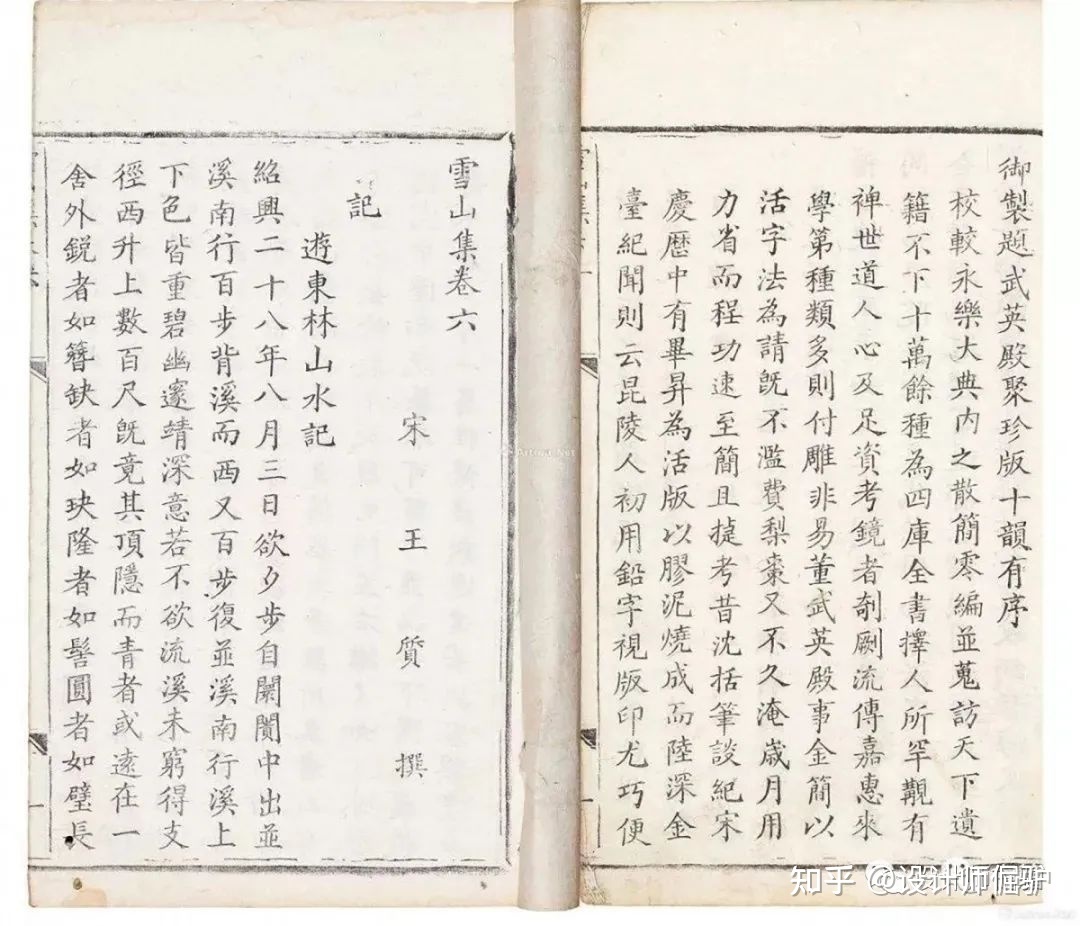 御製題武英殿聚珍版十韻有序
校輯永樂大典內之散簡零編並蒐訪天下遺
籍不下十萬餘種為四庫全書擇人所罕覯有
裨世道人心及足資考鏡者剞劂流傳嘉惠來
學第種類多則付雕非易董武英殿事金簡以
活字法為請既不濫費棗梨又不久淹歲月用
力省而程功速至簡且捷考昔沈括筆談紀宋
慶歷中有畢昇為活版以膠泥燒成而陸深金
臺紀聞則云毘陵人初用鉛字視版印尤巧便
雪山集卷六
宋王質撰
記
遊東林山水記
紹興二十八年八月三日欲夕步自闤闠中出並
溪南行百步背溪而西又百步復並溪南行溪上
下色皆重碧幽邃靖深意若不欲流溪未窮得支
徑西升上數百尺既竟其頂隱而青者或遠在一
舍外銳者如簪缺者如玦隆者如髻圓者如璧長
知乎 @设计师倔驴